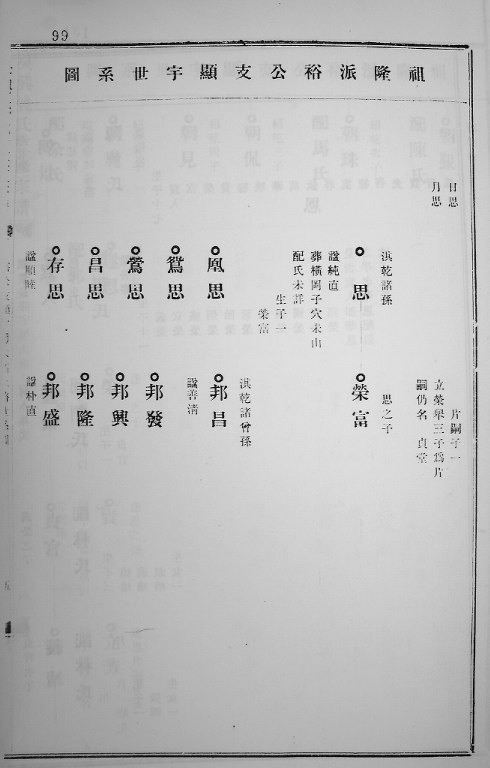 99
祖隆派裕公支顯宇世系圖
日思
月思
片嗣子一
立榮舉三子為片
嗣仍名 貞堂
淇乾諸孫
思
諡純直
葬橫岡子穴未山
配氏未詳
生子一
榮富
思之子
榮富
鳳思
鴛思
鶯思
昌思
存思
諡順睦
淇乾諸曾孫
邦昌
諡善清
邦發
邦興
邦隆
邦盛
諡朴直